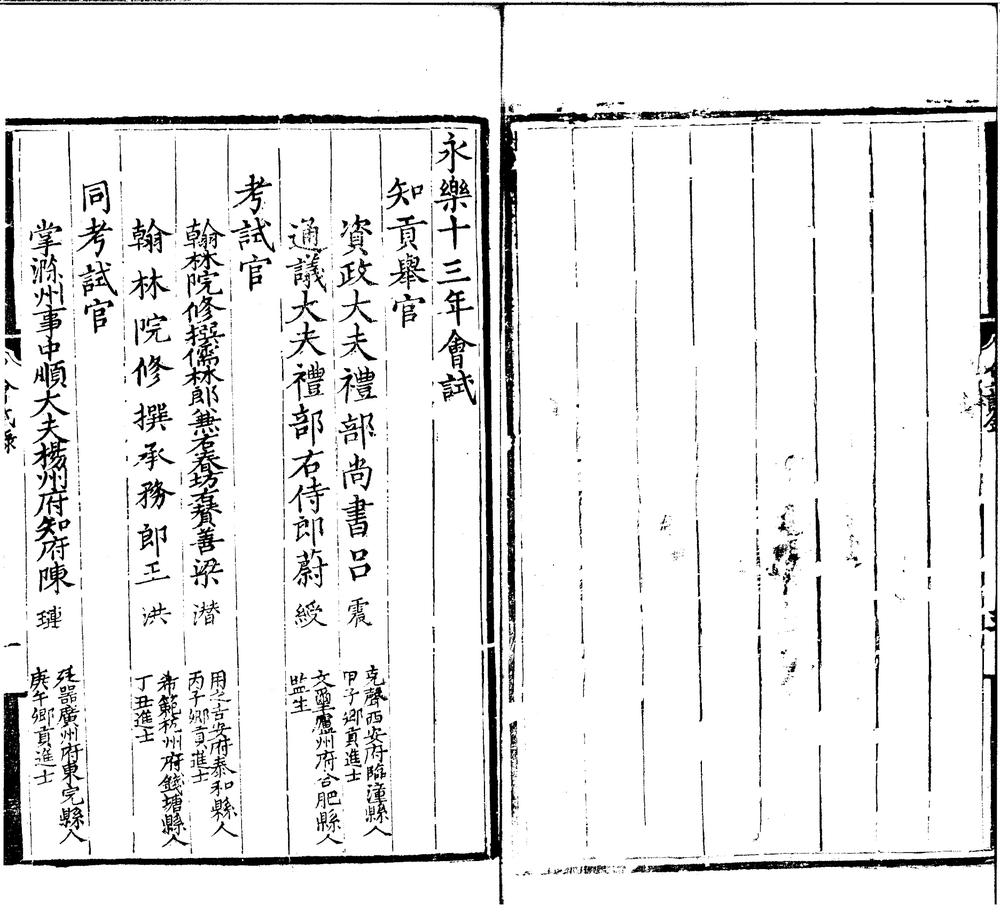 永樂十三年會試
知貢舉官
資政大夫禮部尚書呂震
克聲西安府臨潼縣人
甲子鄉貢進士
通議大夫禮部右侍郎蔚綬
文璽廬州府合肥縣人
監生
考試官
翰林院修撰儒林郎兼右春坊右賛善梁潜
用之吉安府泰和縣人
丙子鄉貢進士
翰林院修撰承務郎王洪
希範杭州府錢塘縣人
丁丑進士
同考試官
掌滁州事中順大夫楊州府知府陳璉
廷器廣州府東完縣人
庚午鄉貢進士
會試錄
一